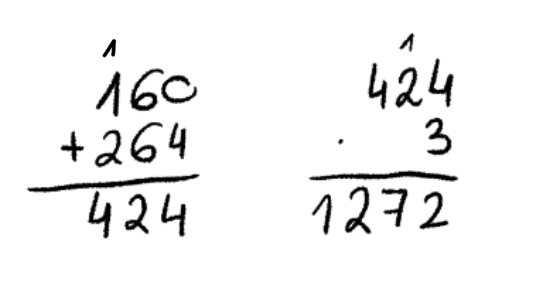 1
160
+264
424
1
424
· 3
1272